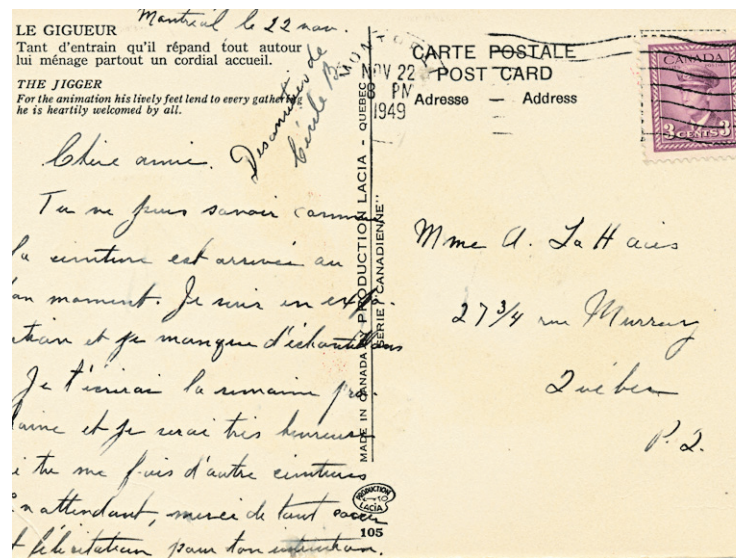 Montréal le 22 nov.
LE GIGUEUR
Tant d'entrain qu'il répand tout autour
lui ménage partout un cordial accueil.
THE JIGGER
For the animation his lively feet lend to every gathering
he is heartily welcomed by all.
Des amitiés de
Cécile B.
Chère amie.
Tu ne puis savoir comme
la ceinture est arrivée au
on moment. Je suis en expo-
ition et je manque d'échantillons
Je t'écrirai la semaine pro-
aine et je serai très heureuse
i tu me fais d'autre ceintures
n attendant, merci de tant
t félicitation pour ton
MADE IN CANADA BY PRODUCTION LACIA - QUEBEC
SÉRIE "CANADIENNE"
PRODUCTION
LACIA
105
MONTR
NOV 22
8 PM
1949
CARTE POSTALE
POST CARD
Adresse — Address
CANADA
3 CENTS 3
Mme A. LaHaies
27 3/4 rue Murray
Québec
P. Q.